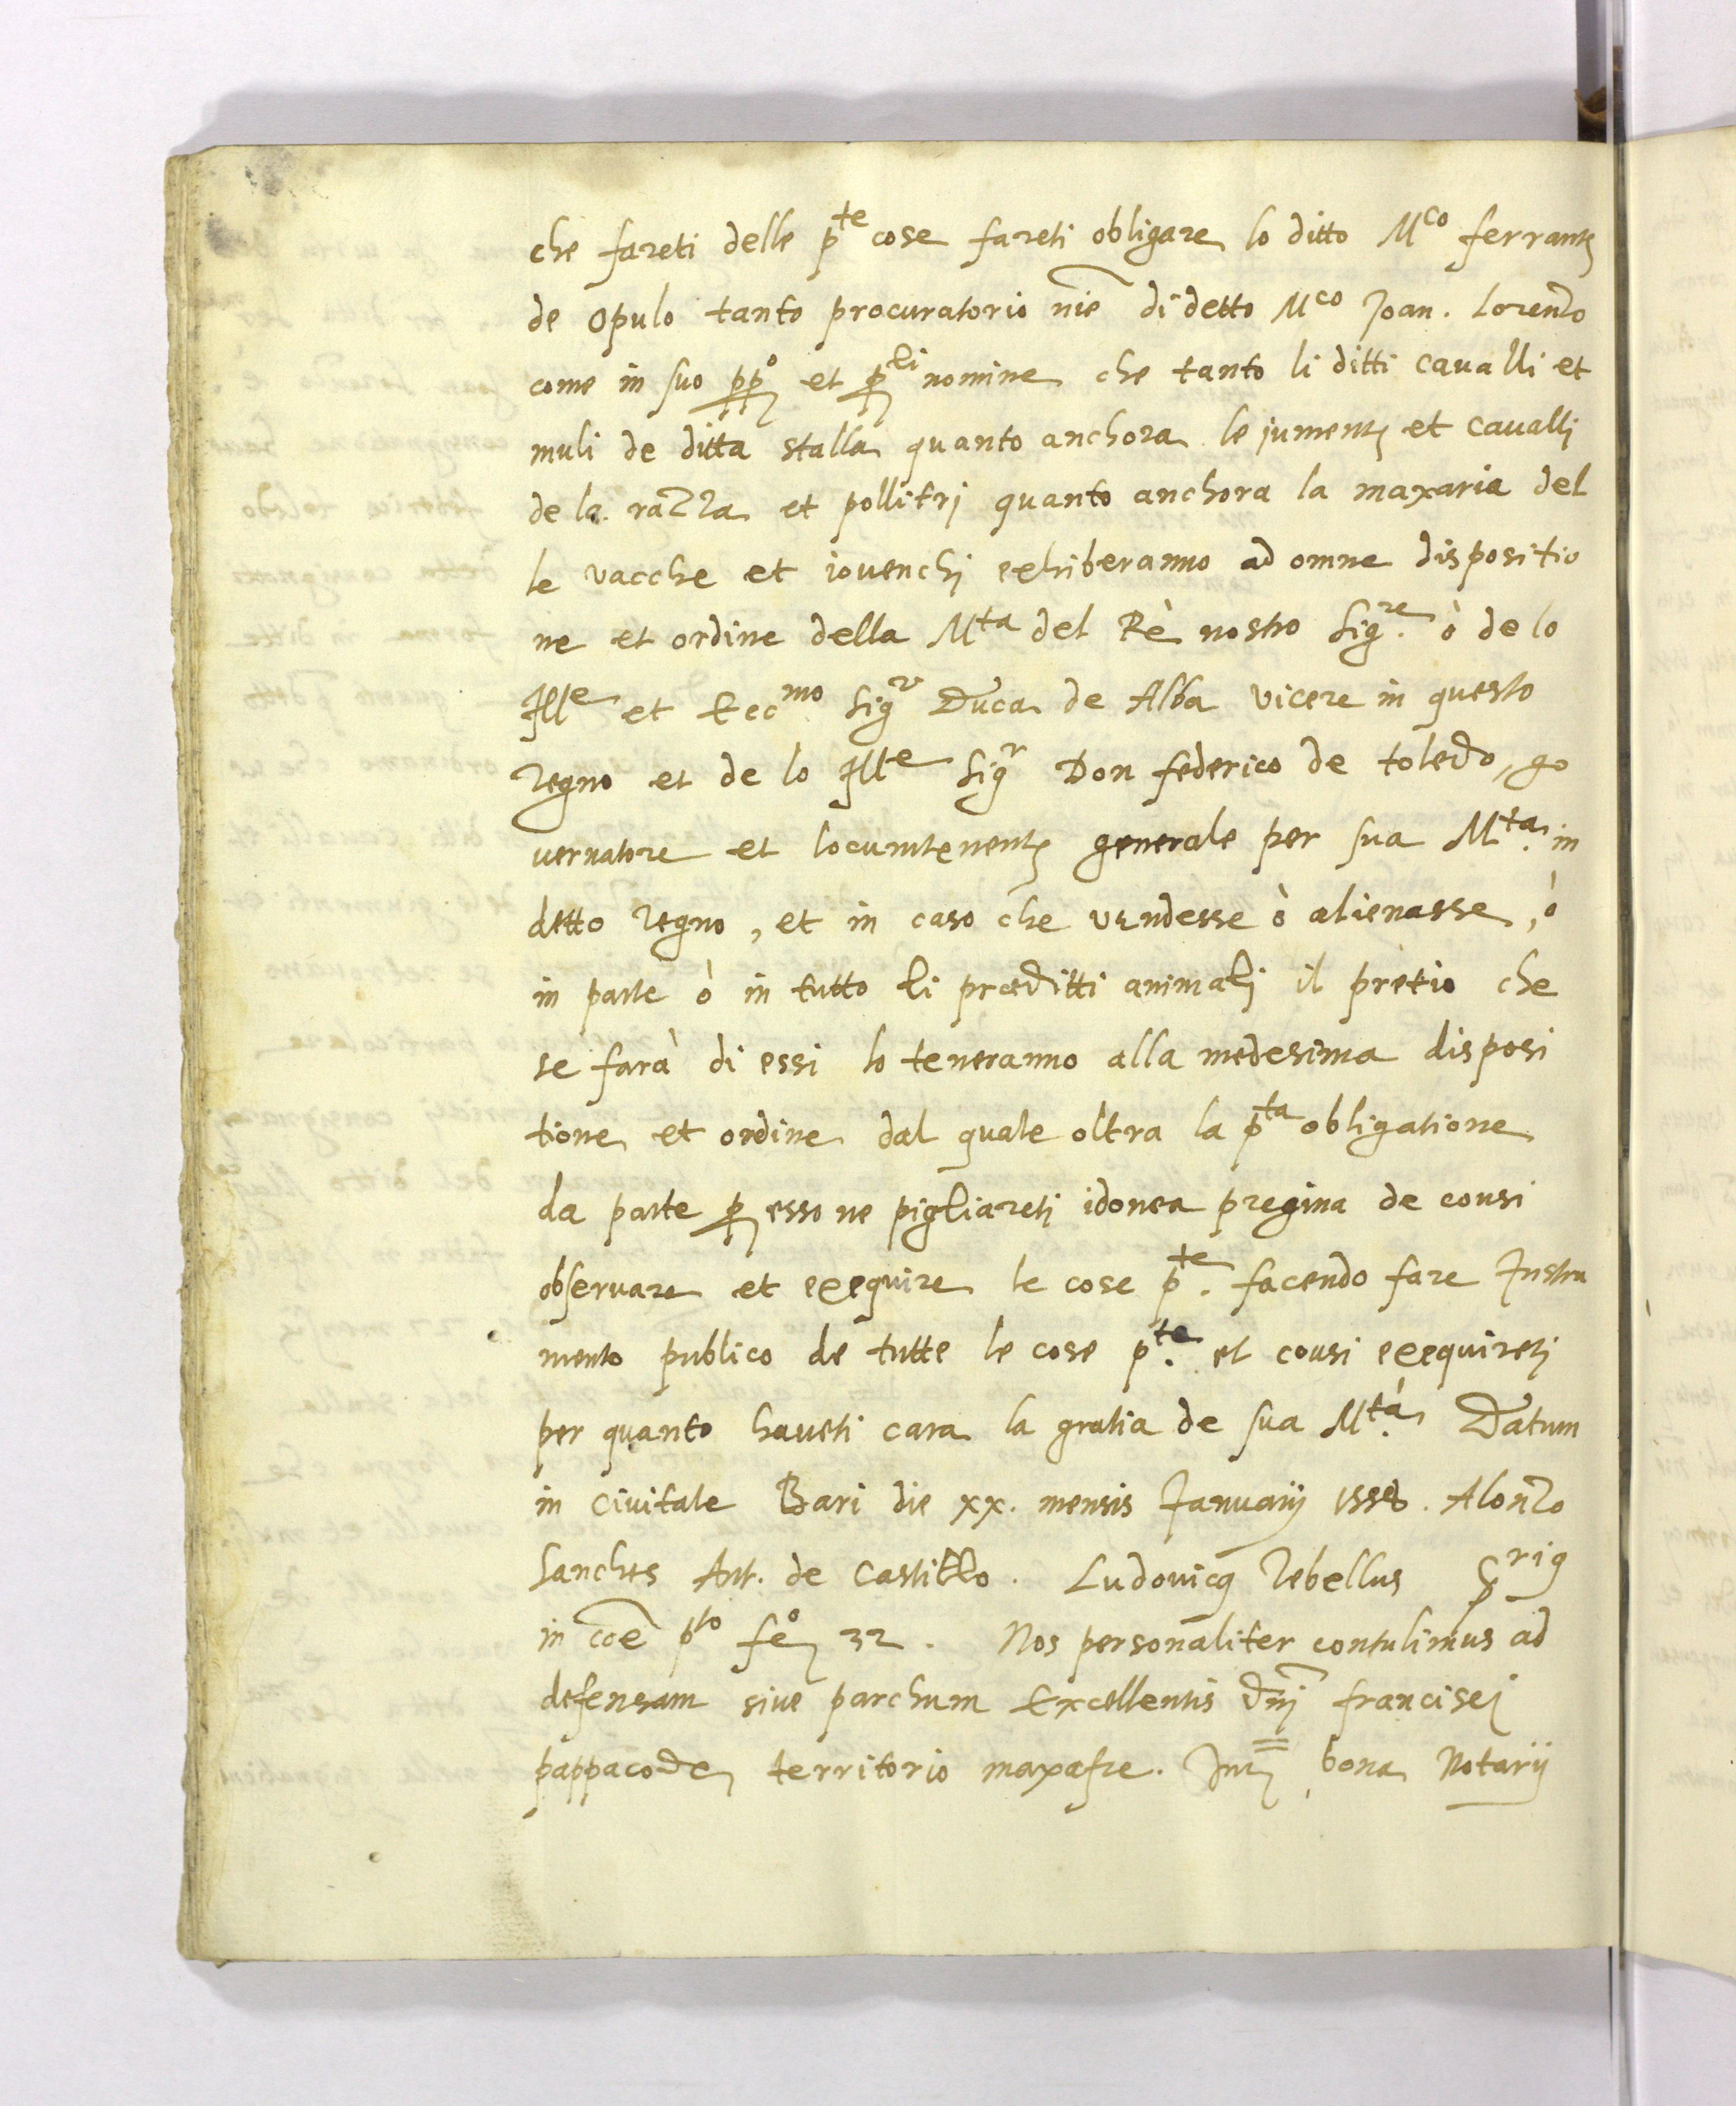 che fareti delle p^te cose fareti obligare lo ditto M^co ferrante
de opulo tanto procuratorio nie di detto M^co Joan. Lorenzo
come in suo pp° et p^li nomine che tanto li ditti cavalli et
muli de ditta stalla quanto anchora le jumente et cavalli
de la razza et pollitri quanto anchora la maxaria del
le vacche et iovenchi exhiberanno ad omne dispositio
ne et ordine della M^ta del Rè nostro Sig^re. ò de lo
Ill^e et Ecc^mo Sig^r Duca de Alba vicere in questo
regno et de lo Ill^e Sig^r Don federico de toledo, go
vernatore et locumtenente generale per sua M^ta. in
detto regno, et in caso che vendesse ò alienasse, ò
in parte ò in tutto li præditti animali il pretio che
se farà di essi lo teneranno alla medesima disposi
tione et ordine dal quale oltra la p^ta obligatione
da parte p esso ne pigliareti idonea pregina de cousi
observare et exequire le cose p^te. facendo fare Instru
mento publico de tutte le cose p^te. et cousi exequireti
per quanto haveti cara la gratia de sua M^tà. Datum
in civitate Bari die xx. mensis Januarij 1558. Alonzo
Sanches Ant. de Castillo. Ludovicus Rebellus
in coe p^to fe° 32. Nos personaliter contulimus ad
defensam sive parchum Excellentis dni francisci
pappacode territorio maxafre. bona Notarij